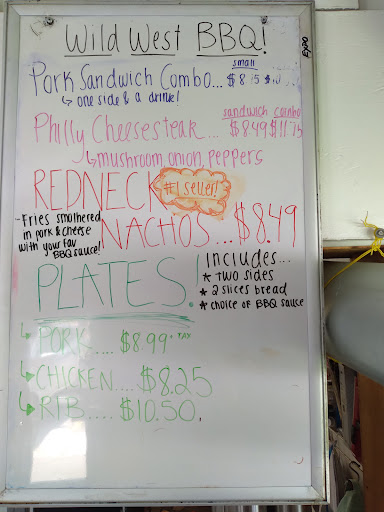 Wild West BBQ!
small
Pork Sandwich Combo... $8.75
↳ one side & a drink!
sandwich combo
Philly Cheesesteak... $8.49 $11.75
↳mushroom, onion, peppers
REDNECK #1 seller!
NACHOS... $8.49
-Fries smothered
in pork & cheese
with your fav
BBQ sauce!
PLATES.
Includes...
* Two sides
* 2 slices bread
* choice of BBQ sauce
↳ PORK.... $8.99 + TAX
↳ CHICKEN.... $8.25
↳ RIB.... $10.50.
EXPO